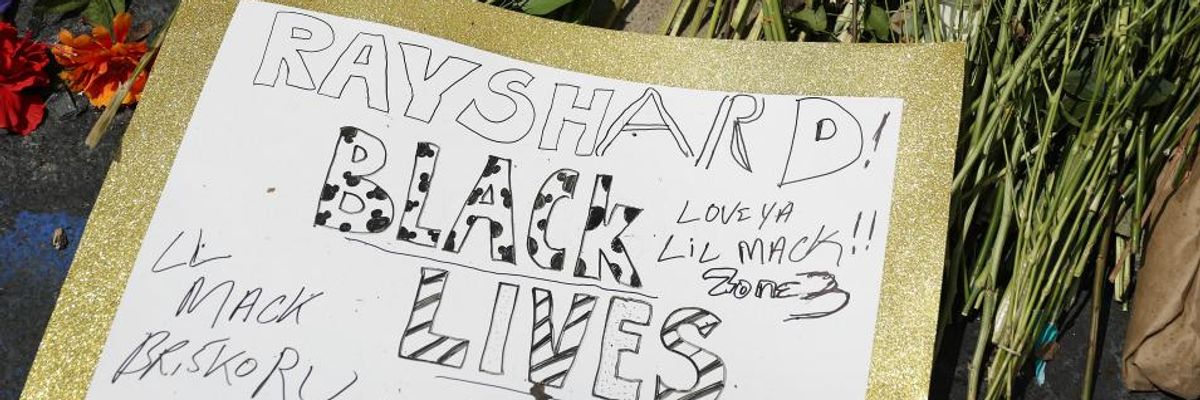 RAYSHARD!
BLACK
LIVES
LOVE YA
LIL MACK!!
Zone 3
LIL
MACK